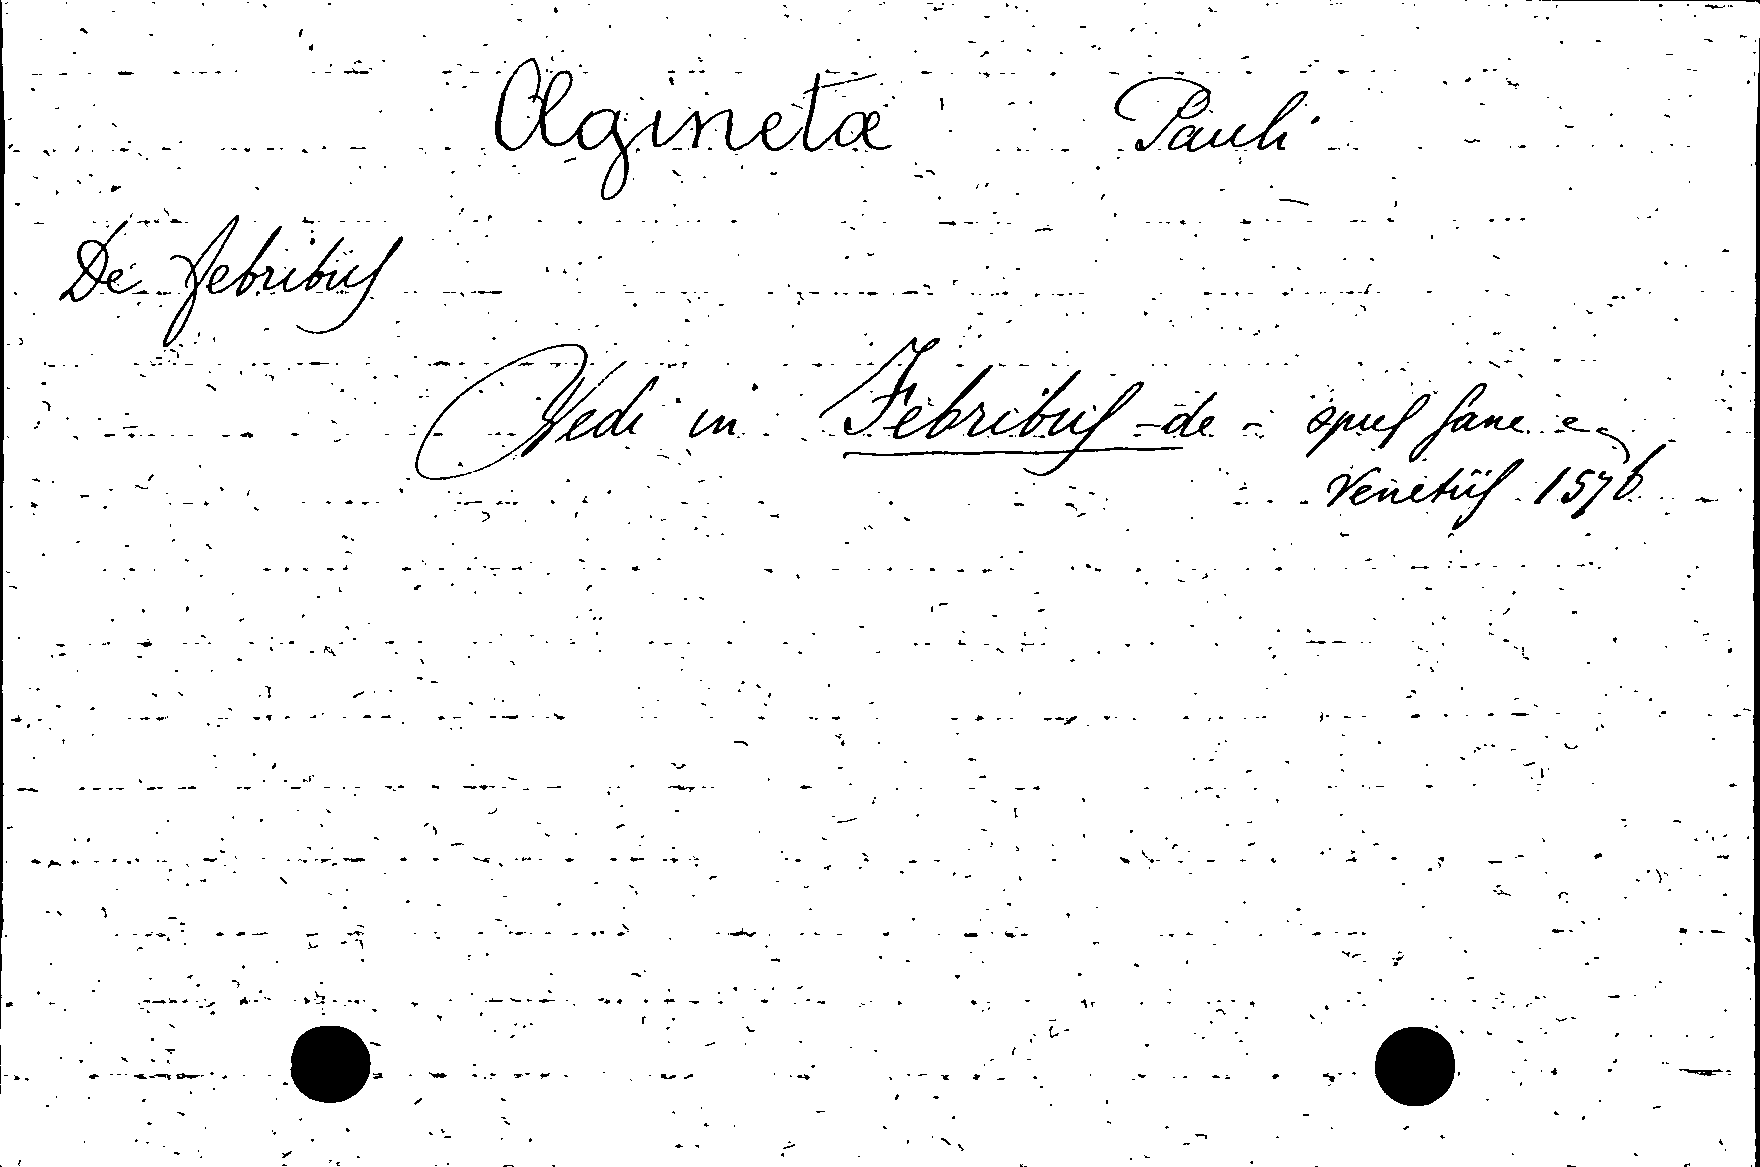 Aeginetæ Pauli
De febribus
Vedi in Febribus - de - opus sane
Venetiis 1576